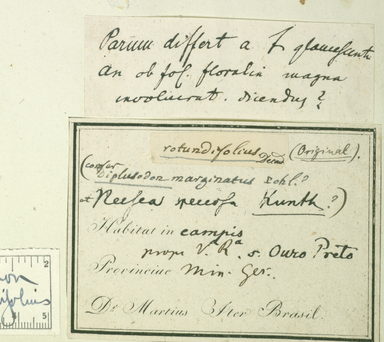 Parum differt a L. glaucescente
an ob fol. floralia magna
involucrat. dicendus?
rotundifolius DC mss (Original).
(confer Diplusodon marginatus Pohl?
et Nesaea speciosa Kunth?)
Habitat in campis
prope V.ª R.ª s. Ouro Preto
Provinciae Min. Ger.
Dr Martius Iter Brasil.